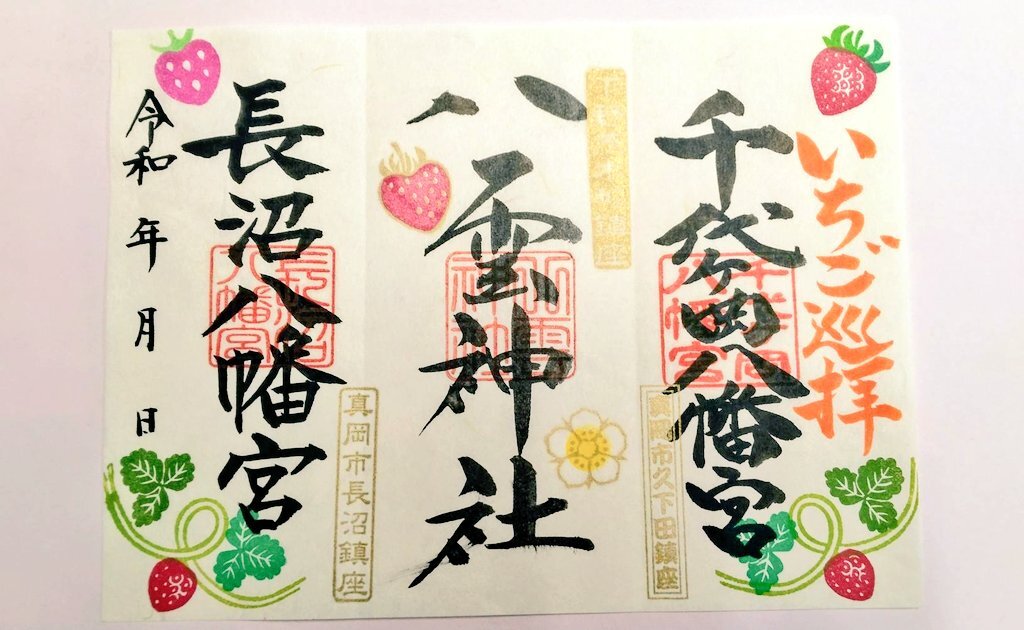 いちご巡拝
千代ヶ岡八幡宮
真岡市久下田鎮座
八雲神社
長沼八幡宮
長沼八幡宮
真岡市長沼鎮座
令和 年 月 日